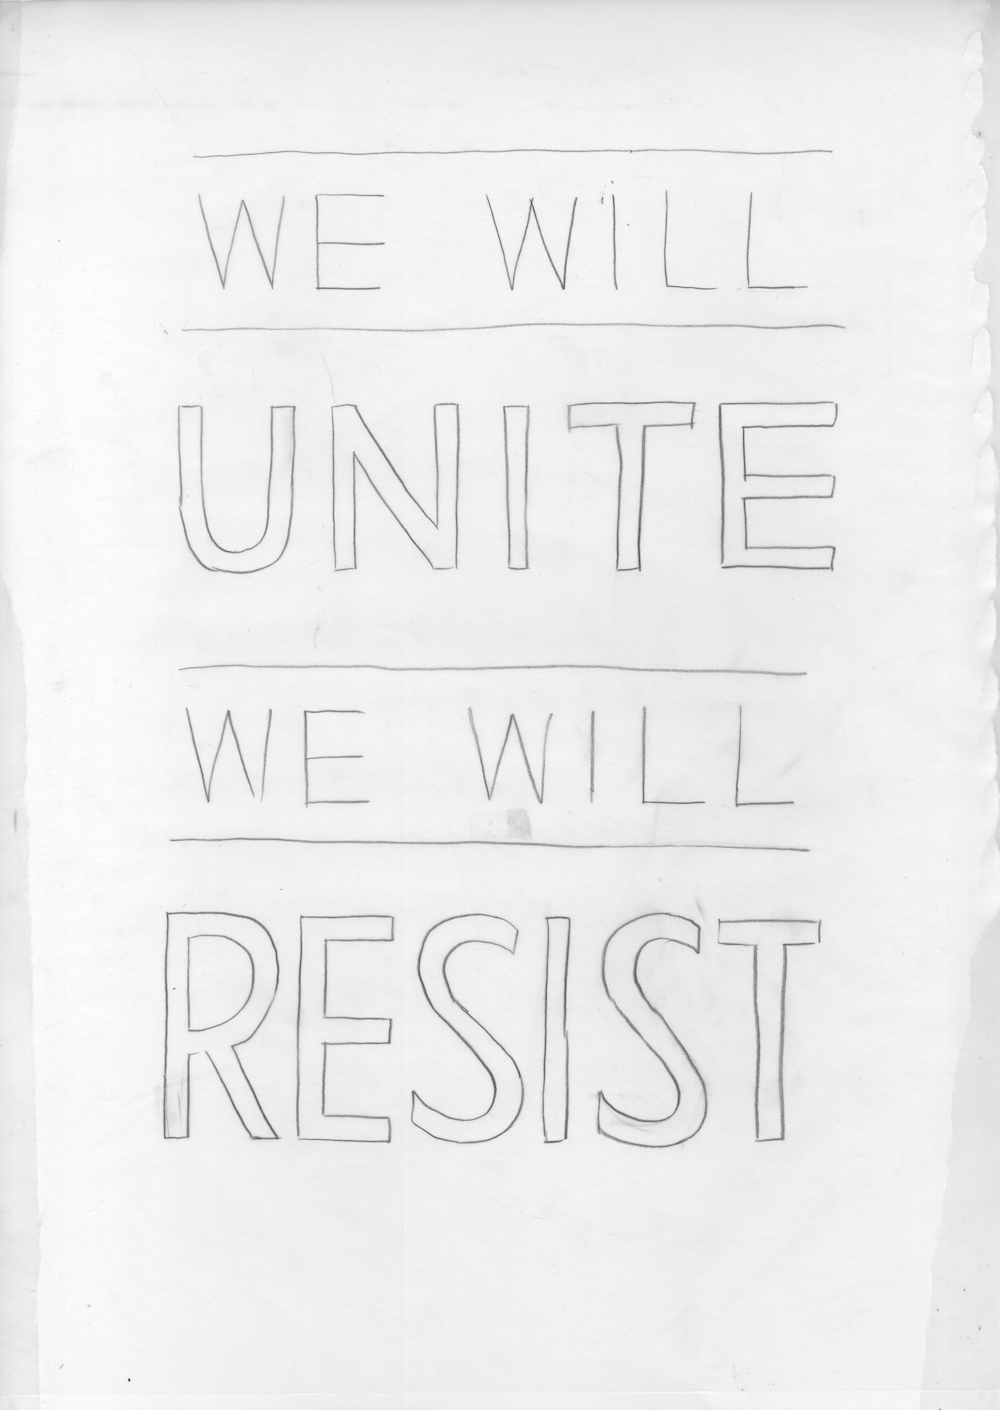 WE WILL
UNITE
WE WILL
RESIST